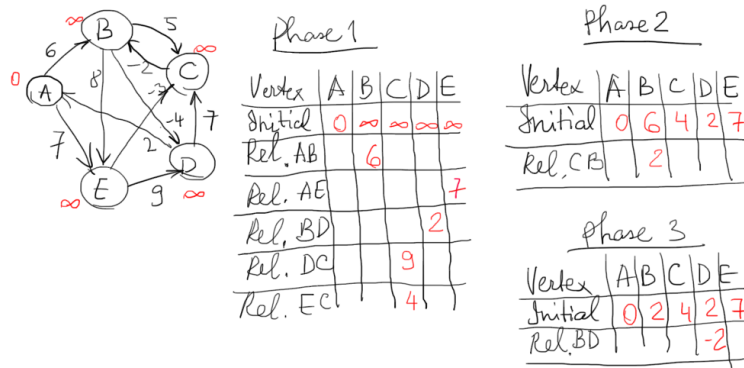 ∞ B 5
6 -2 C ∞
0 A 8 -3
-4 7
7 2 D
∞ E 9 ∞
Phase 1
Vertex A B C D E
Initial 0 ∞ ∞ ∞ ∞
Rel. AB 6
Rel. AE 7
Rel. BD 2
Rel. DC 9
Rel. EC 4
Phase 2
Vertex A B C D E
Initial 0 6 4 2 7
Rel. CB 2
Phase 3
Vertex A B C D E
Initial 0 2 4 2 7
Rel. BD -2